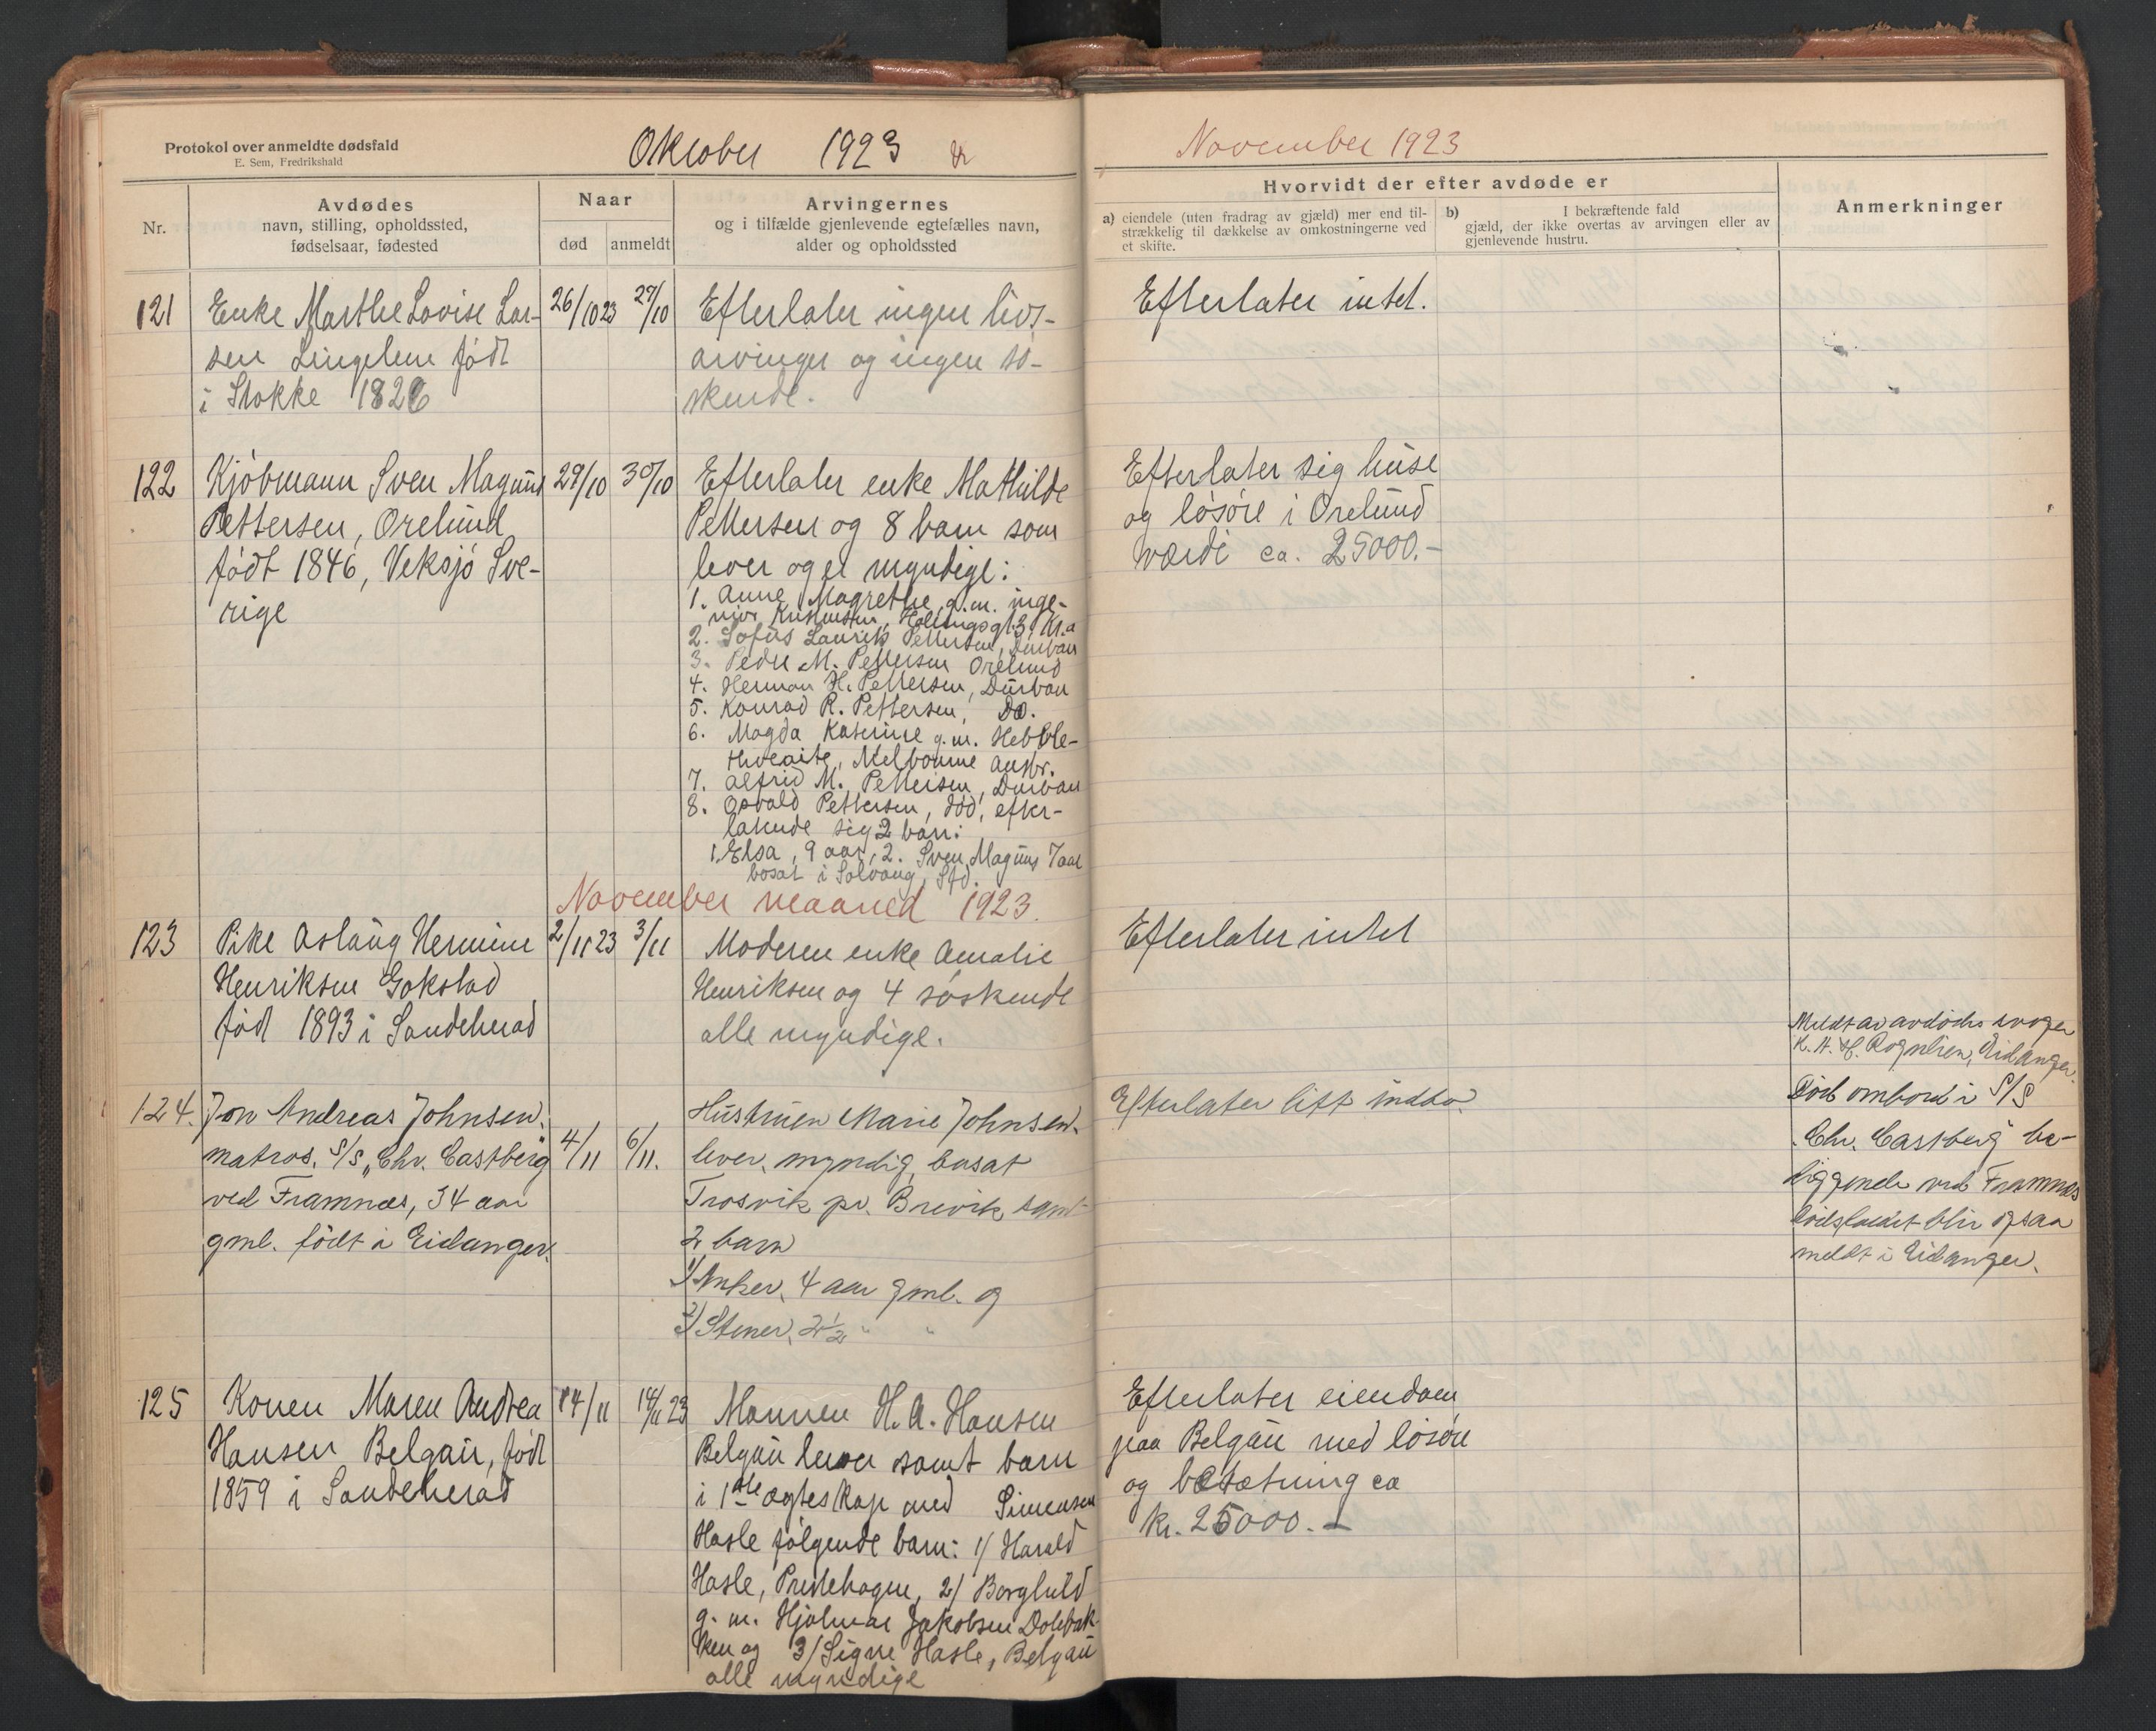 Protokol over anmeldte dødsfald
E. Sem, Fredrikshald
Oktober 1923
Nr.
Avdødes
navn, stilling, opholdssted,
fødselsaar, fødested
Naar
død
anmeldt
Arvingernes
og i tilfælde gjenlevende egtefælles navn,
alder og opholdssted
121
Enke Marthe Lovise Lar-
sen Lingelem født
i Stokke 1826
26/10 23
27/10
Efterlater ingen livs-
arvinger og ingen sø-
skende.
122
Kjøbmann Sven Magnus
Pettersen, Orelund
født 1846, Veksjø Sve-
rige
29/10
30/10
Efterlater enke Mathilde
Pettersen og 8 barn som
lever og er myndige:
1. Anne Magrethe, g.m. inge-
niør Kristensen, Halingsgt. 3, Kr.a
2. Sofus Laurits Pettersen, Durban
3. Peder M. Pettersen Orelund
4. Herman H. Pettersen, Durban
5. Konrad R. Pettersen, Do.
6. Magda Katerine g.m. Hebble-
thveaite, Melbourne Austr.
7. Alfrid M. Pettersen, Durban
8. Osvald Pettersen, død, efter-
latende sig 2 barn:
1. Elsa, 9 aar, 2. Sven Magnus 7 aar
bosat i Solvang, Sfd.
November maaned 1923.
123
Pike Aslaug Hermine
Henriksen Gokstad
fød 1893 i Sandeherad
2/11 23
3/11
Moderen enke Amalie
Henriksen og 4 søskende
alle myndige.
124.
Jon Andreas Johnsen.
matros. S/S „Chr. Castberg"
ved Framnæs, 34 aar
gml. født i Eidanger.
4/11
6/11.
Hustruen Marie Johnsen.
lever, myndig, bosat
Trosvik pr. Brevik samt
2 barn
1/ Anker, 4 aar gml. og
2/ Stener, 2 1/2 " "
125
Konen Maren Andrea
Hansen Belgau, født
1859 i Sandeherad
14/11
14/11 23
Mannen H. A. Hansen
Belgau lever samt barn
i 1ste ægteskap med Simensen
Hasle følgende barn: 1/ Harald
Hasle, Prestehagen, 2/ Borghild
g. m. Hjalmar Jakobsen Dolebak-
ken og 3/ Signe Hasle, Belgau
alle myndige
November 1923
Hvorvidt der efter avdøde er
a) eiendele (uten fradrag av gjæld) mer end til-
strækkelig til dækkelse av omkostningerne ved
et skifte.
b) I bekræftende fald
gjæld, der ikke overtas av arvingen eller av
gjenlevende hustru.
Anmerkninger
Efterlater intet.
Efterlater sig huse
og løsøre i Orelund
værdi ca. 25000.-
Efterlater intet
Efterlater litt indbo.
Meldt av avdødes svoger
K. A. H. Rognlien, Eidanger.
Død ombord i S/S
„Chr. Castberg" be-
liggende ved Framnæs
dødsfaldet blir ogsaa
meldt i Eidanger.
Efterlater eiendom
paa Belgau med løsøre
og besætning ca
kr. 25000.-